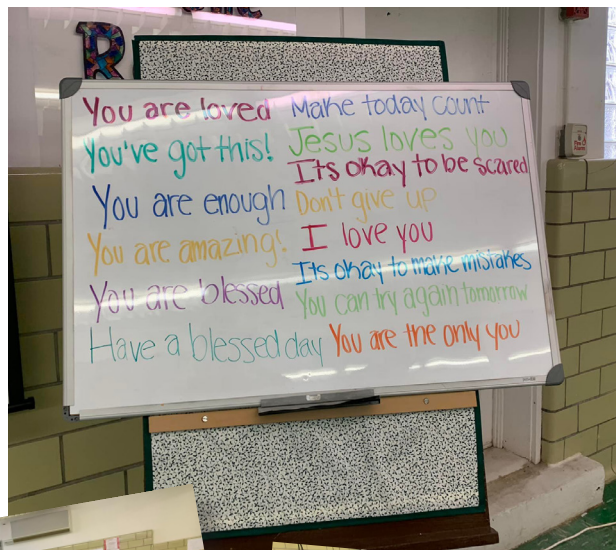 You are loved
You've got this!
You are enough
You are amazing!
You are blessed
Have a blessed day
Make today count
Jesus loves you
Its okay to be scared
Don't give up
I love you
Its okay to make mistakes
You can try again tomorrow
You are the only you